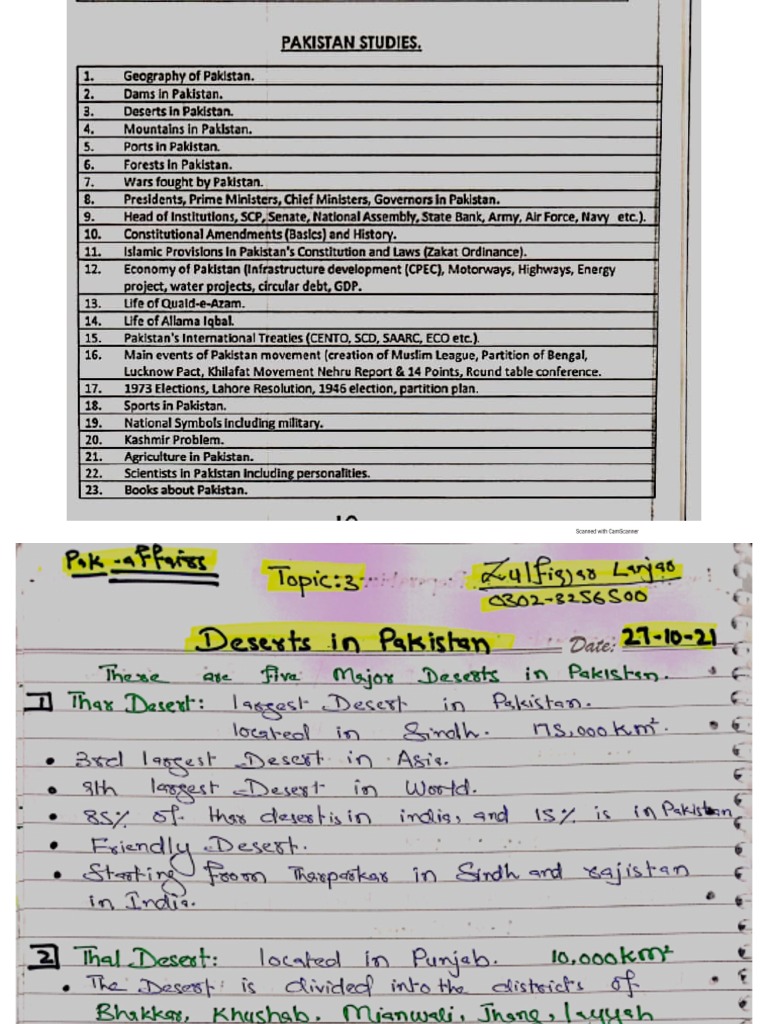 PAKISTAN STUDIES.
1. Geography of Pakistan.
2. Dams in Pakistan.
3. Deserts in Pakistan.
4. Mountains in Pakistan.
5. Ports in Pakistan.
6. Forests in Pakistan.
7. Wars fought by Pakistan.
8. Presidents, Prime Ministers, Chief Ministers, Governors in Pakistan.
9. Head of Institutions, SCP, Senate, National Assembly, State Bank, Army, Air Force, Navy etc.).
10. Constitutional Amendments (Basics) and History.
11. Islamic Provisions in Pakistan's Constitution and Laws (Zakat Ordinance).
12. Economy of Pakistan (Infrastructure development (CPEC), Motorways, Highways, Energy
project, water projects, circular debt, GDP.
13. Life of Quaid-e-Azam.
14. Life of Allama Iqbal.
15. Pakistan's International Treaties (CENTO, SCD, SAARC, ECO etc.).
16. Main events of Pakistan movement (creation of Muslim League, Partition of Bengal,
Lucknow Pact, Khilafat Movement Nehru Report & 14 Points, Round table conference.
17. 1973 Elections, Lahore Resolution, 1946 election, partition plan.
18. Sports in Pakistan.
19. National Symbols including military.
20. Kashmir Problem.
21. Agriculture in Pakistan.
22. Scientists in Pakistan including personalities.
23. Books about Pakistan.
Scanned with CamScanner
Pak-affairs
Topic:3
Zulfiqar Larjao
0302-3256500
Deserts in Pakistan
Date: 27-10-21
There are five Major Deserts in Pakistan.
1 Thar Desert: largest Desert in Pakistan.
located in Sindh. 175,000 km².
• 3rd largest Desert in Asia.
• 9th largest Desert in World.
• 85% of thar desert is in india, and 15% is in Pakistan
• Friendly Desert.
• Starting from Tharparkar in Sindh and rajistan
in India.
2 Thal Desert: located in Punjab. 10,000km²
• The Desert is divided into the districts of
Bhakkar, Khushab, Mianwali, Jhang, layyah